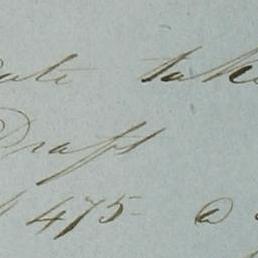 ate take
Draft
475- @